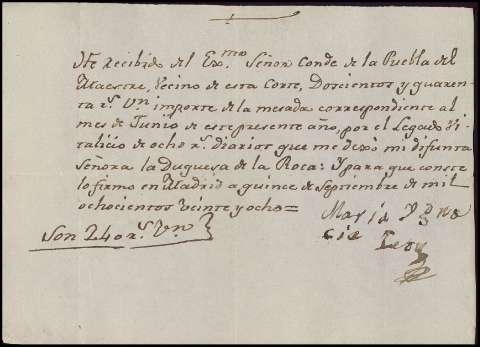 He recibido del Ex.mo Señor Conde de la Puebla del
Maestre, Vecino de esta Corte, Doscientos y quaren
ta r.s V.n importe de la mesada correspondiente al
mes de Junio de este presente año, por el Legado Vi
talicio de ocho r.s diarios que me dexó mi difunta
Señora la Duquesa de la Roca: Y para que conste
lo firmo en Madrid a quince de Septiembre de mil
ochocientos veinte y ocho=
Maria Ygna
cia
Son 240 r.s V.n